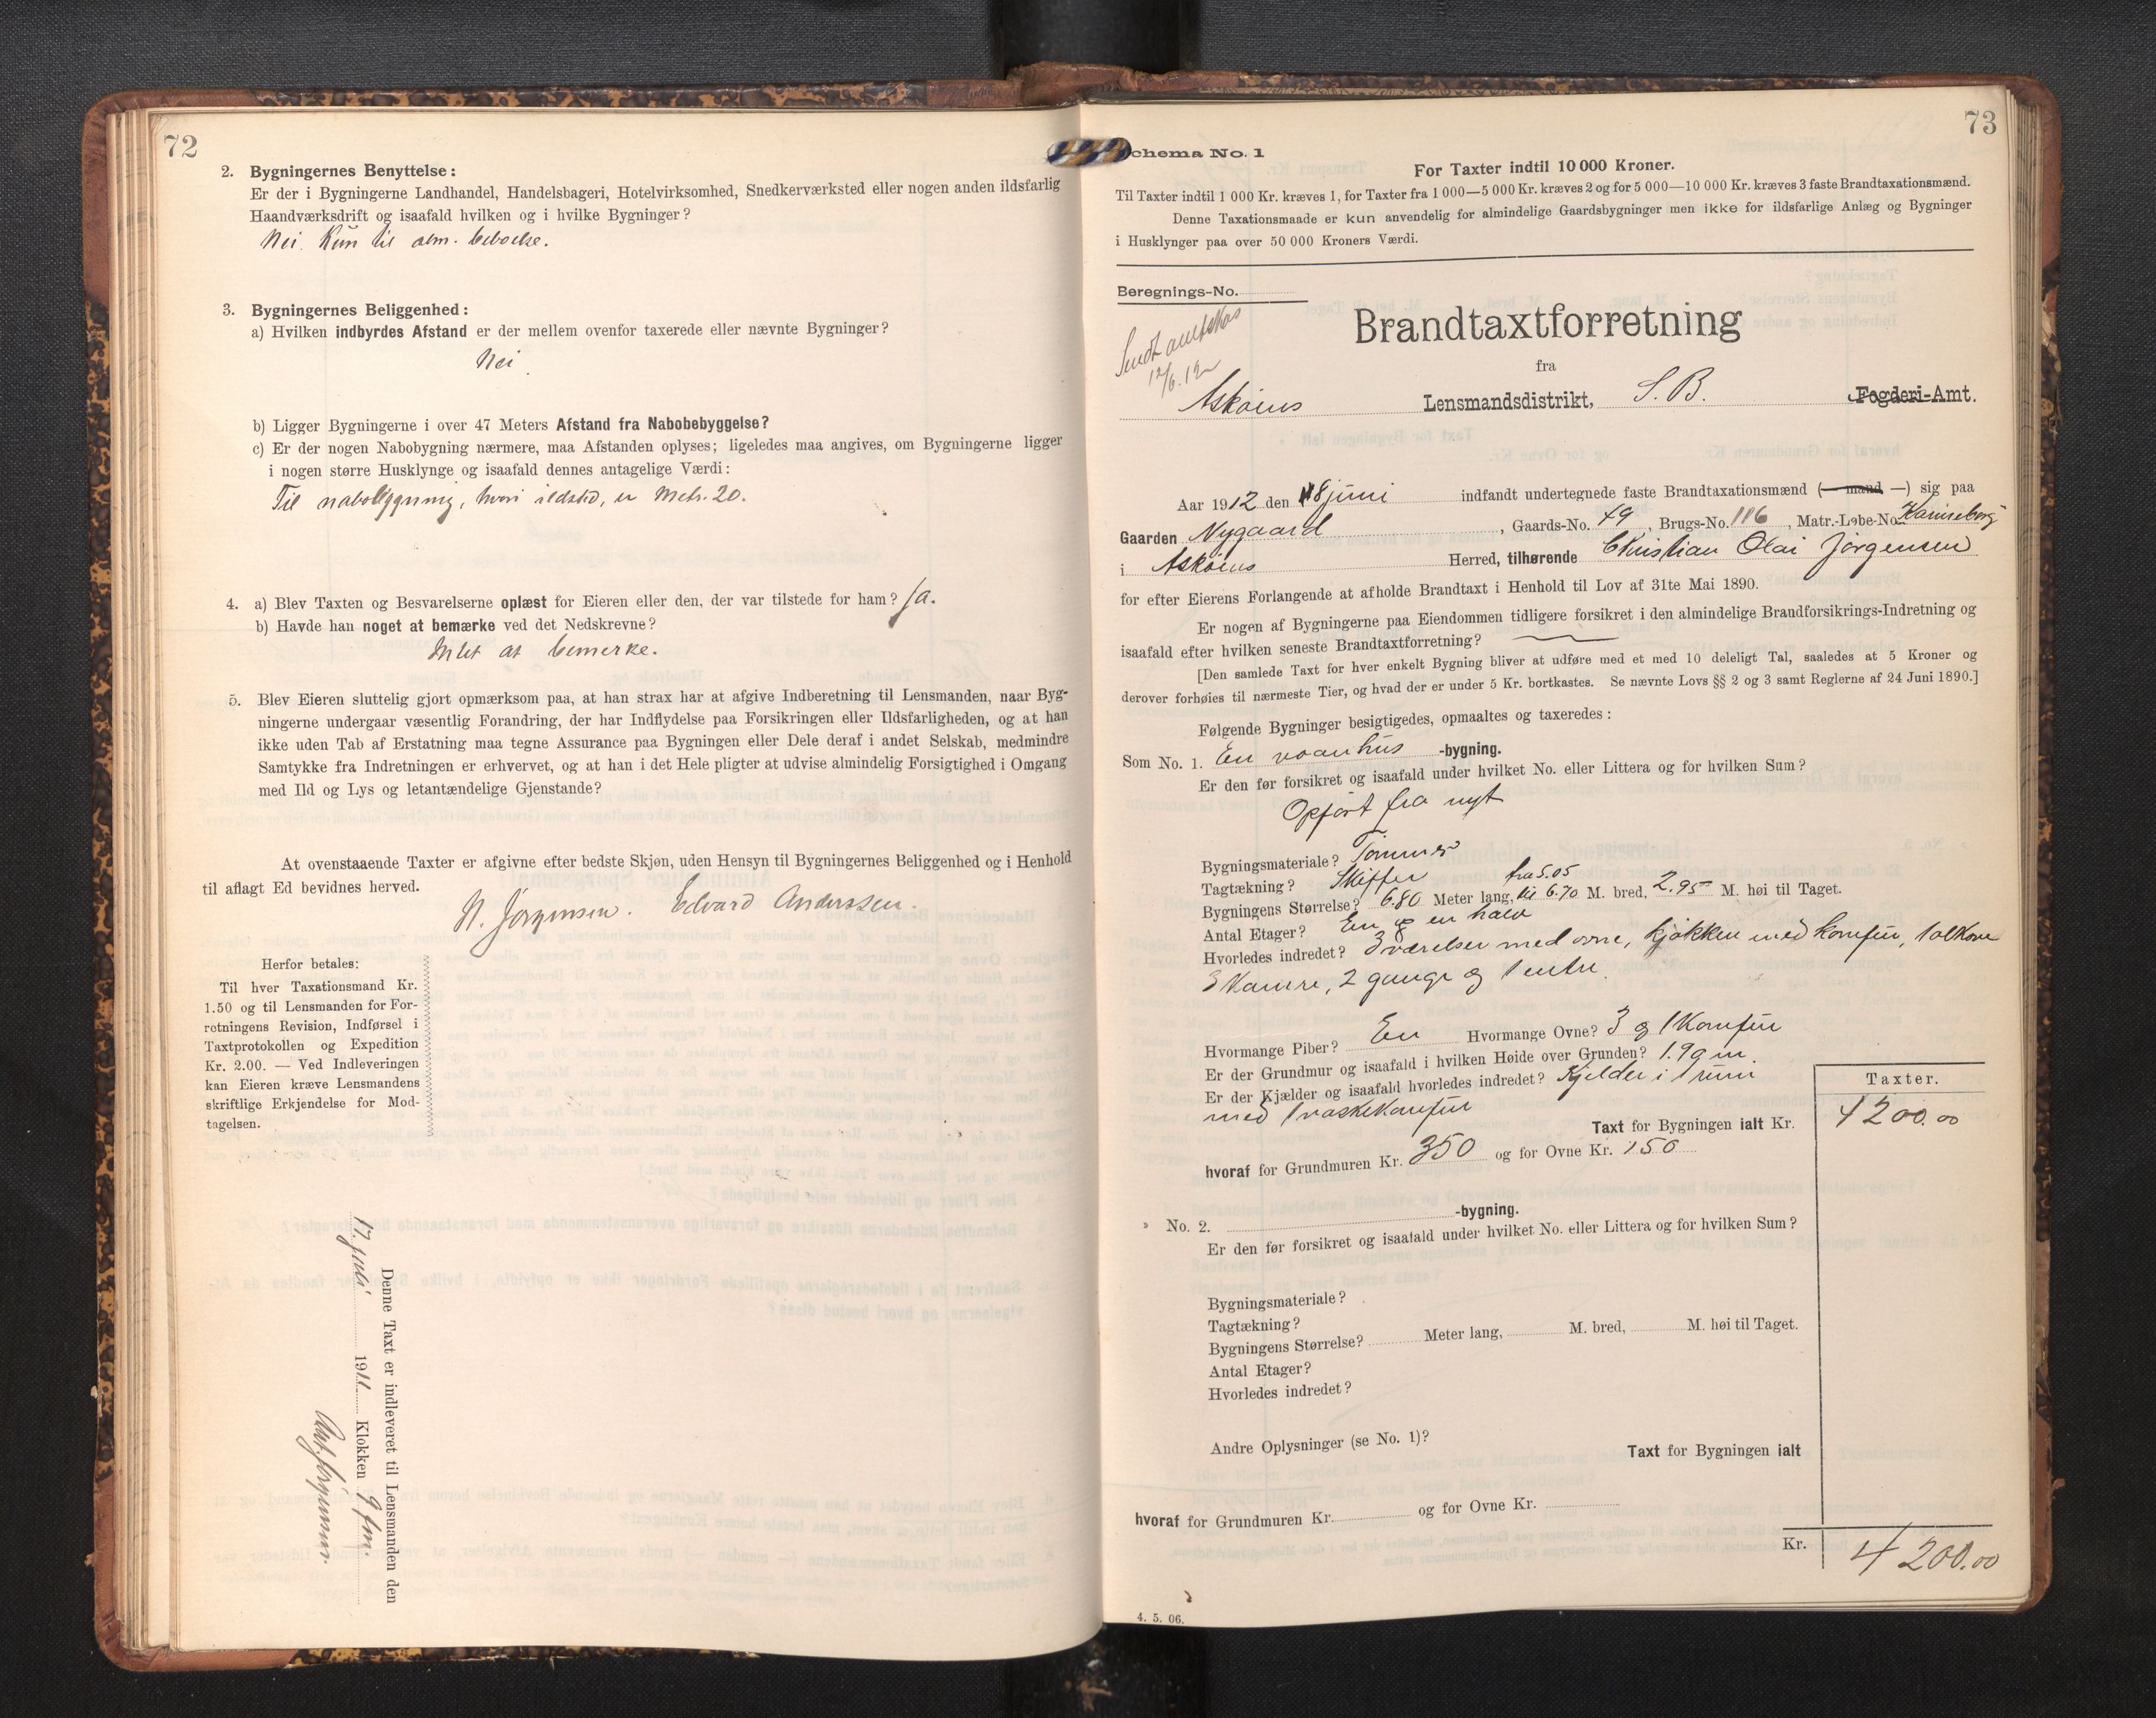 72
2. Bygningernes Benyttelse:
Er der i Bygningerne Landhandel, Handelsbageri, Hotelvirksomhed, Snedkerværksted eller nogen anden ildsfarlig
Haandværksdrift og isaafald hvilken og i hvilke Bygninger?
Nei. Kun til alm. beboelse.
3. Bygningernes Beliggenhed:
a) Hvilken indbyrdes Afstand er der mellem ovenfor taxerede eller nævnte Bygninger?
Nei.
b) Ligger Bygningerne i over 47 Meters Afstand fra Nabobebyggelse?
c) Er der nogen Nabobygning nærmere, maa Afstanden oplyses; ligeledes maa angives, om Bygningerne ligger
i nogen større Husklynge og isaafald dennes antagelige Værdi:
Til nabobygning, hvori ildsted, er Metr. 20.
4. a) Blev Taxten og Besvarelserne oplæst for Eieren eller den, der var tilstede for ham? Ja.
b) Havde han noget at bemærke ved det Nedskrevne?
Intet at bemerke.
5. Blev Eieren sluttelig gjort opmærksom paa, at han strax har at afgive Indberetning til Lensmanden, naar Byg-
ningerne undergaar væsentlig Forandring, der har Indflydelse paa Forsikringen eller Ildsfarligheden, og at han
ikke uden Tab af Erstatning maa tegne Assurance paa Bygningen eller Dele deraf i andet Selskab, medmindre
Samtykke fra Indretningen er erhvervet, og at han i det Hele pligter at udvise almindelig Forsigtighed i Omgang
med Ild og Lys og letantændelige Gjenstande?
At ovenstaaende Taxter er afgivne efter bedste Skjøn, uden Hensyn til Bygningernes Beliggenhed og i Henhold
til aflagt Ed bevidnes herved.
N. Jørgensen. Edvard Anderssen.
Herfor betales:
Til hver Taxationsmand Kr.
1.50 og til Lensmanden for For-
retningens Revision, Indførsel i
Taxtprotokollen og Expedition
Kr. 2.00. — Ved Indleveringen
kan Eieren kræve Lensmandens
skriftlige Erkjendelse for Mod-
tagelsen.
Denne Taxt er indleveret til Lensmanden den
17. juli 1911 Klokken 9 fm.
Jørgensen
73
Schema No. 1
For Taxter indtil 10 000 Kroner.
Til Taxter indtil 1 000 Kr. kræves 1, for Taxter fra 1 000—5 000 Kr. kræves 2 og for 5 000—10 000 Kr. kræves 3 faste Brandtaxationsmænd.
Denne Taxationsmaade er kun anvendelig for almindelige Gaardsbygninger men ikke for ildsfarlige Anlæg og Bygninger
i Husklynger paa over 50 000 Kroners Værdi.
Beregnings-No.
Sendt amtskas
12/6.12
Brandtaxtforretning
fra
Askøens Lensmandsdistrikt, S. B. Fogderi-Amt.
Aar 1912 den 8 juni indfandt undertegnede faste Brandtaxationsmænd (— mand —) sig paa
Gaarden Nygaard, Gaards-No. 49, Brugs-No. 116, Matr.-Løbe-No.
i Askøens Herred, tilhørende Christian Olai Jørgensen
for efter Eierens Forlangende at afholde Brandtaxt i Henhold til Lov af 31te Mai 1890.
Er nogen af Bygningerne paa Eiendommen tidligere forsikret i den almindelige Brandforsikrings-Indretning og
isaafald efter hvilken seneste Brandtaxtforretning?
[Den samlede Taxt for hver enkelt Bygning bliver at udføre med et med 10 deleligt Tal, saaledes at 5 Kroner og
derover forhøies til nærmeste Tier, og hvad der er under 5 Kr. bortkastes. Se nævnte Lovs §§ 2 og 3 samt Reglerne af 24 Juni 1890.]
Følgende Bygninger besigtigedes, opmaaltes og taxeredes:
Som No. 1. En vaanhus -bygning.
Er den før forsikret og isaafald under hvilket No. eller Littera og for hvilken Sum?
Opført fra nyt
Bygningsmateriale? Tømmer
Tagtækning? Skiffer
Bygningens Størrelse? 6.80 Meter lang, fra 5.05 til 6.70 M. bred, 2.95 M. høi til Taget.
Antal Etager? En og en halv
Hvorledes indredet? 3 værelser med ovne, kjøkken med komfur, 1 alkove
3 Kamre, 2 gange og 1 entre.
Hvormange Piber? En Hvormange Ovne? 3 og 1 Komfur
Er der Grundmur og isaafald i hvilken Høide over Grunden? 1.90 m.
Er der Kjælder og isaafald hvorledes indredet? Kjelder i 1 rum
med 1 vaskekomfur
Taxter.
Taxt for Bygningen ialt Kr. 4200.00
hvoraf for Grundmuren Kr. 350 og for Ovne Kr. 150
No. 2. -bygning.
Er den før forsikret og isaafald under hvilket No. eller Littera og for hvilken Sum?
Bygningsmateriale?
Tagtækning?
Bygningens Størrelse? Meter lang, M. bred, M. høi til Taget.
Antal Etager?
Hvorledes indredet?
Andre Oplysninger (se No. 1)?
Taxt for Bygningen ialt
hvoraf for Grundmuren Kr. og for Ovne Kr.
Kr. 4200.00
4. 5. 06.